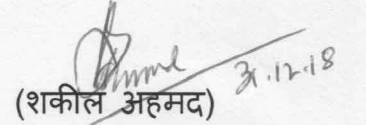 31.12.18
(शकील अहमद)